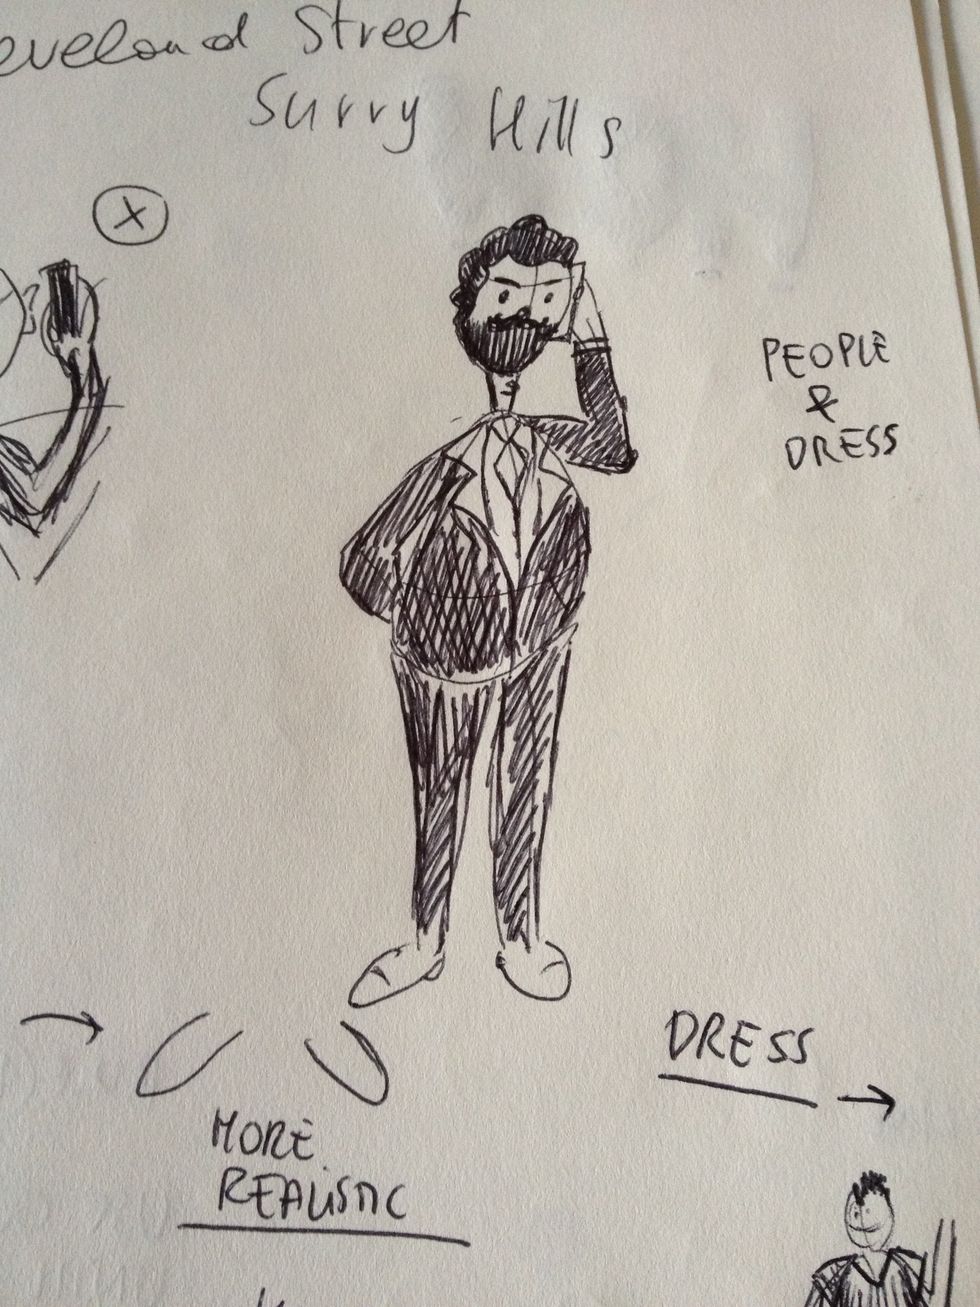 eveland Street
Surry Hills
X
PEOPLE
&
DRESS
DRESS
MORE
REALISTIC